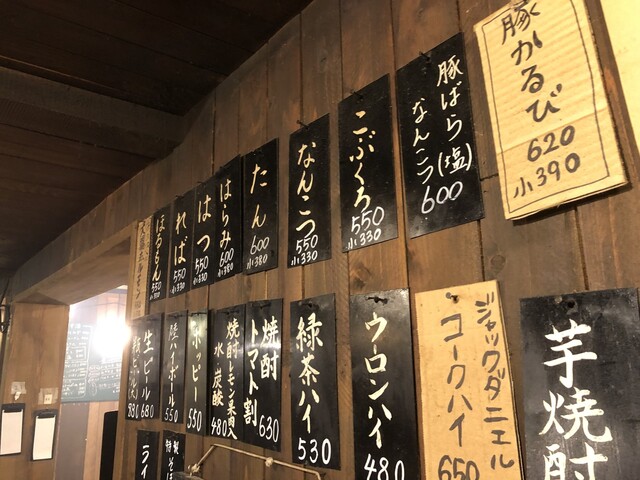 豚かるび
620
小390
豚ばら(塩)
なんこつ
600
こぶくろ
550
小330
なんこつ
550
小330
たん
600
小380
はらみ
600
小380
はつ
550
小330
れば
550
小330
ほるもん
550
小330
芋焼酎
ジャックダニエル
コークハイ
650
ウーロンハイ
480
緑茶ハイ
530
焼酎
トマト割
630
焼酎レモン果肉入
水 炭酸
480
ホッピー
550
ハイボール
550
生ビール
680
特製
ライ